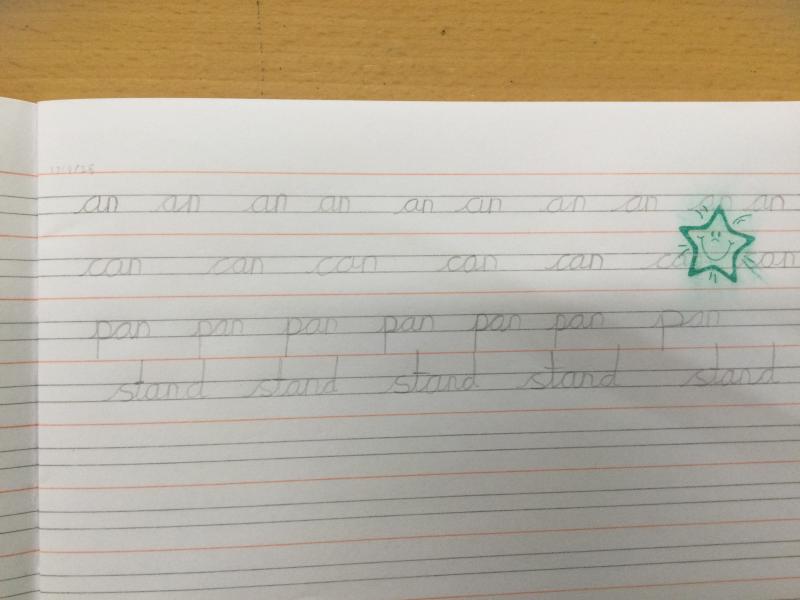 an an an an an an an an an an
can can can can can can can
pan pan pan pan pan pan pan
stand stand stand stand stand